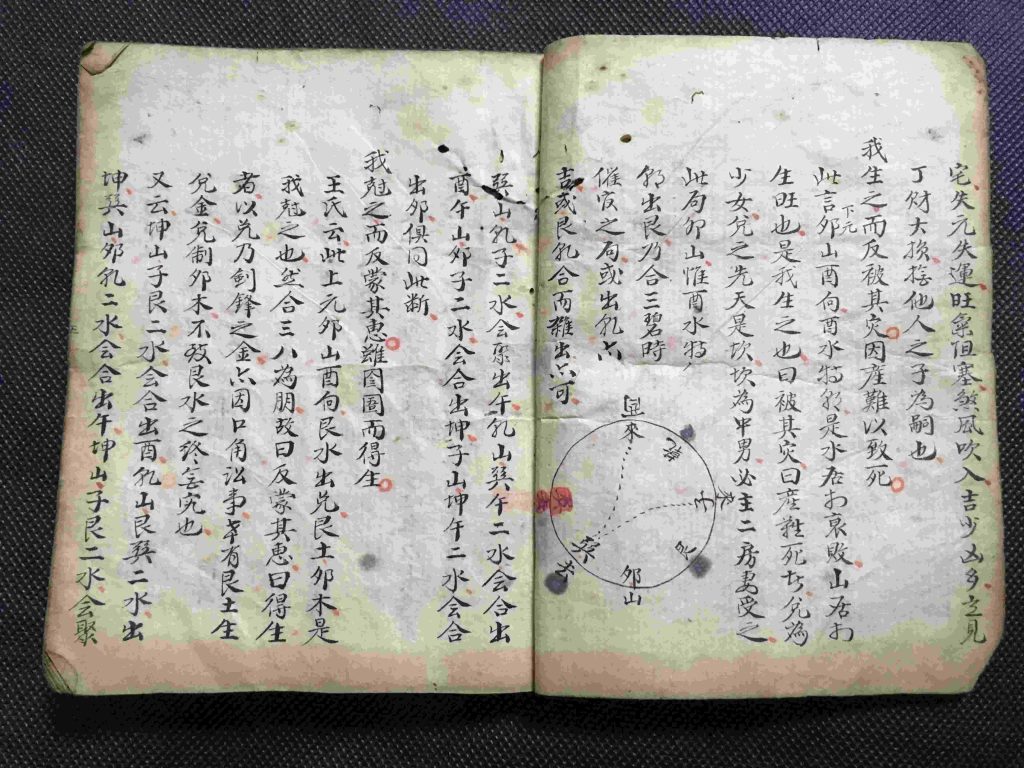 宅失元失運旺氣阻塞煞風吹入吉少凶多立見
丁財大損撿他人之子為嗣也
我生之而反被其灾因産難以致死
此言下元卯山酉向酉水特朝是水居於衰敗山居於
生旺也是我生之也曰被其灾曰産難死者兌為
少女兌之先天是坎坎為中男必主二房妻受之
此局卯山惟酉水特
朝出艮乃合三碧時
催官之局或出乾六
吉或艮乾合两雜出亦可
來
乾
子
艮
巽去
卯山
巽山乾子二水会聚出午乾山巽午二水会合出
酉午山卯子二水会合出坤子山坤午二水会合
出卯俱同此断
我尅之而反蒙其惠雖囹圄而得生
王氏云此上元卯山酉向艮水出兌艮土卯木是
我尅之也然合三八為朋故曰反蒙其惠曰得生
者以兌乃剣鋒之金亦因口角訟事幸有艮土生
兌金兌制卯木不致艮水之終宄也
又云坤山子艮二水会合出酉乾山艮巽二水出
坤巽山卯乾二水会合出午坤山子艮二水会聚